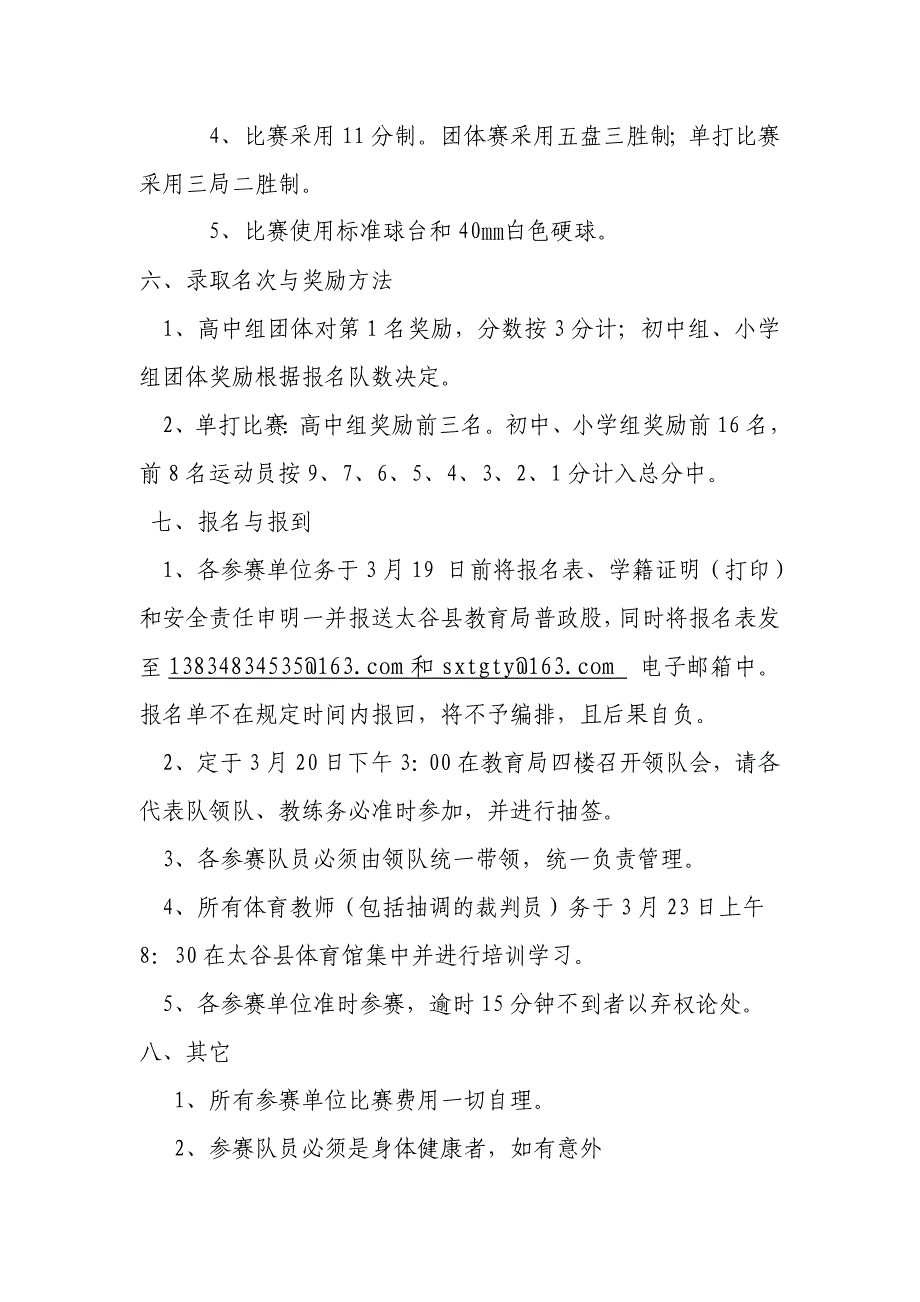 4、比赛采用11分制。团体赛采用五盘三胜制；单打比赛
采用三局二胜制。
5、比赛使用标准球台和40mm白色硬球。
六、录取名次与奖励方法
1、高中组团体对第1名奖励，分数按3分计；初中组、小学
组团体奖励根据报名队数决定。
2、单打比赛：高中组奖励前三名。初中、小学组奖励前16名，
前8名运动员按9、7、6、5、4、3、2、1分计入总分中。
七、报名与报到
1、各参赛单位务于3月19 日前将报名表、学籍证明（打印）
和安全责任申明一并报送太谷县教育局普政股，同时将报名表发
至13834834535@163.com和sxtgty@163.com 电子邮箱中。
报名单不在规定时间内报回，将不予编排，且后果自负。
2、定于3月20日下午3：00在教育局四楼召开领队会，请各
代表队领队、教练务必准时参加，并进行抽签。
3、各参赛队员必须由领队统一带领，统一负责管理。
4、所有体育教师（包括抽调的裁判员）务于3月23日上午
8：30在太谷县体育馆集中并进行培训学习。
5、各参赛单位准时参赛，逾时15分钟不到者以弃权论处。
八、其它
1、所有参赛单位比赛费用一切自理。
2、参赛队员必须是身体健康者，如有意外